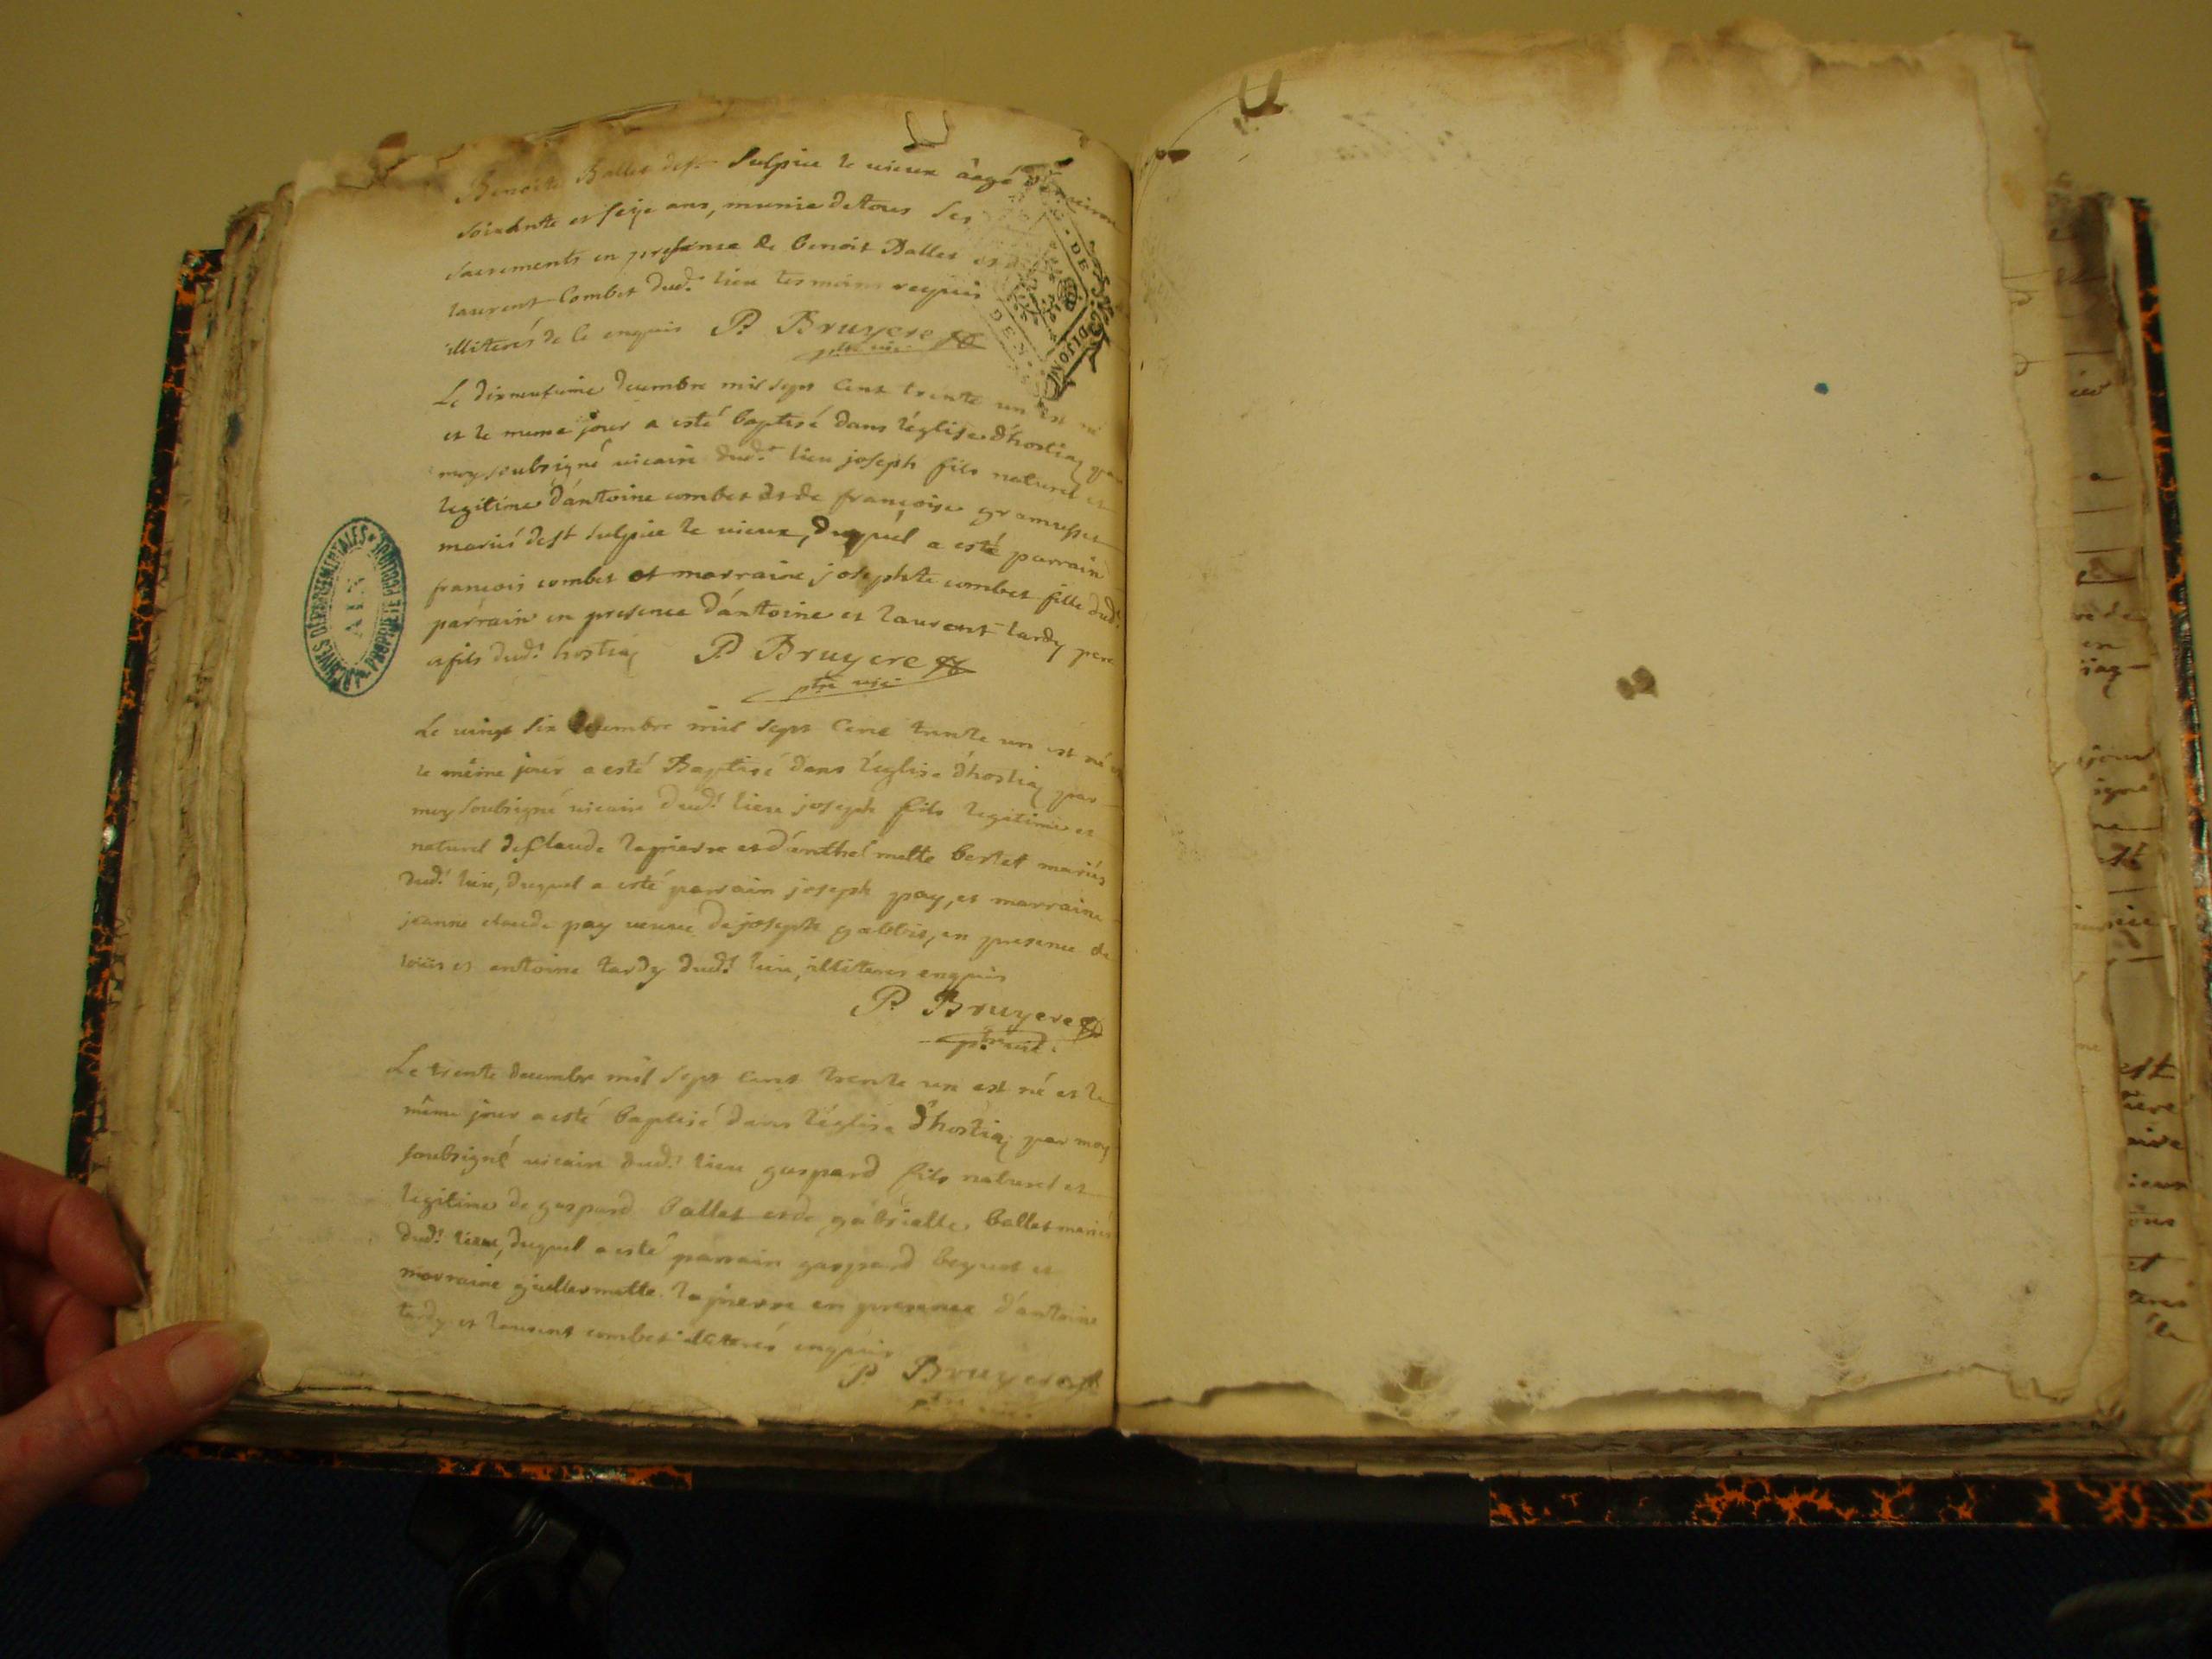 Benoite Ballet de st Sulpice le vieux âagé d'environ
soixante et seize ans, munie de tous ses
sacrements en presence de benoit Ballet et
laurent Combet dud.t lieu tesmoins requis
illiterés de ce enquis P. Bruyere
ptre vic.
Le dixneufvime decembre mil sept cent trente un est né
et le meme jour a esté baptisé dans l'église d'hostiaz par
moy soubsigné vicaire dud.t lieu joseph fils naturel et
legitime d'antoine combet et de françoise gramusset
mariés de st sulpice le vieux, duquel a esté parrain
françois combet et marraine josephte combet fille dud.t
parrain en presence d'antoine et laurent tardy pere
et fils dud.t hostiaz P. Bruyere
ptre vic.
Le vingt six decembre mil sept cent trente un est né et
le même jour a esté Baptisé dans l'église d'hostiaz par
moy soubsigné vicaire dud.t lieu joseph fils legitime et
naturel de Claude lapierre et d'anthelmette berlet mariés
dud.t lieu, duquel a esté parrain joseph pay, et marraine
jeanne claude pay veuve de joseph gabbit, en presence de
loüis et antoine tardy dud.t lieu, illiteres enquis
P. Bruyere
ptre vic.
Le trente decembre mil sept cent trente un est né et le
même jour a esté baptisé dans l'église d'hostiaz par moy
soubsigné vicaire dud.t lieu gaspard fils naturel et
legitime de gaspard ballet et de gabrielle ballet mariés
dud.t lieu, duquel a esté parrain gaspard beguet et
marraine guillermette lapierre en presence d'antoine
tardy et laurent combet illiterés enquis
P. Bruyere
ARCHIVES DÉPARTEMENTALES
AIN
PROPRIÉTÉ PUBLIQUE
DE
DIJON